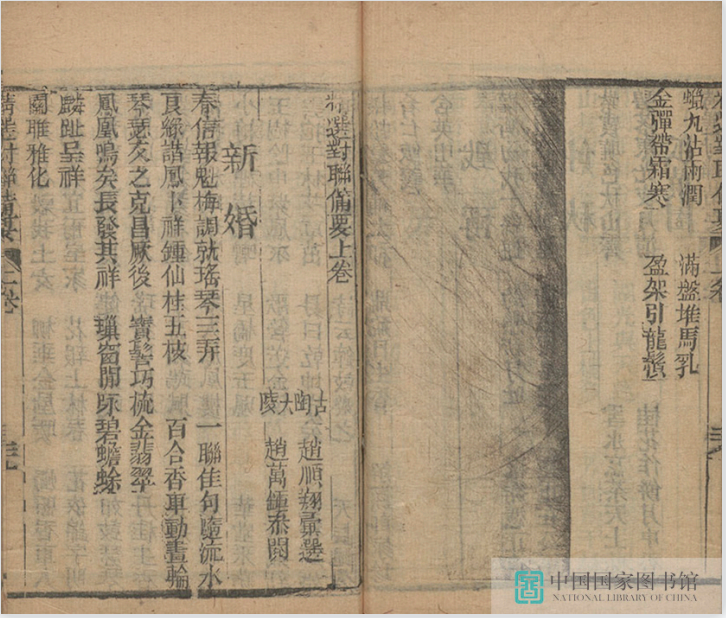 蠟丸沾雨潤　滿盤堆馬乳
金彈帶霜寒　盈架引龍鬚
精選對聯備要　上卷
精選對聯備要上卷
古陶　趙順翔彙選
大陵　趙萬鍾泰閱
新婚
春信報魁梅調就瑤琴三弄　一聯佳句隨流水
良緣諧鳳卜祥鍾仙桂五枝　百合香車動畫輪
琴瑟友之克昌厥後　寶髻巧梳金翡翠
鳳凰鳴矣長發其祥　窗開碧蟾蜍
麟趾呈祥
關雎雅化
精選對聯備要　上卷
中国国家图书馆
NATIONAL LIBRARY OF CHINA